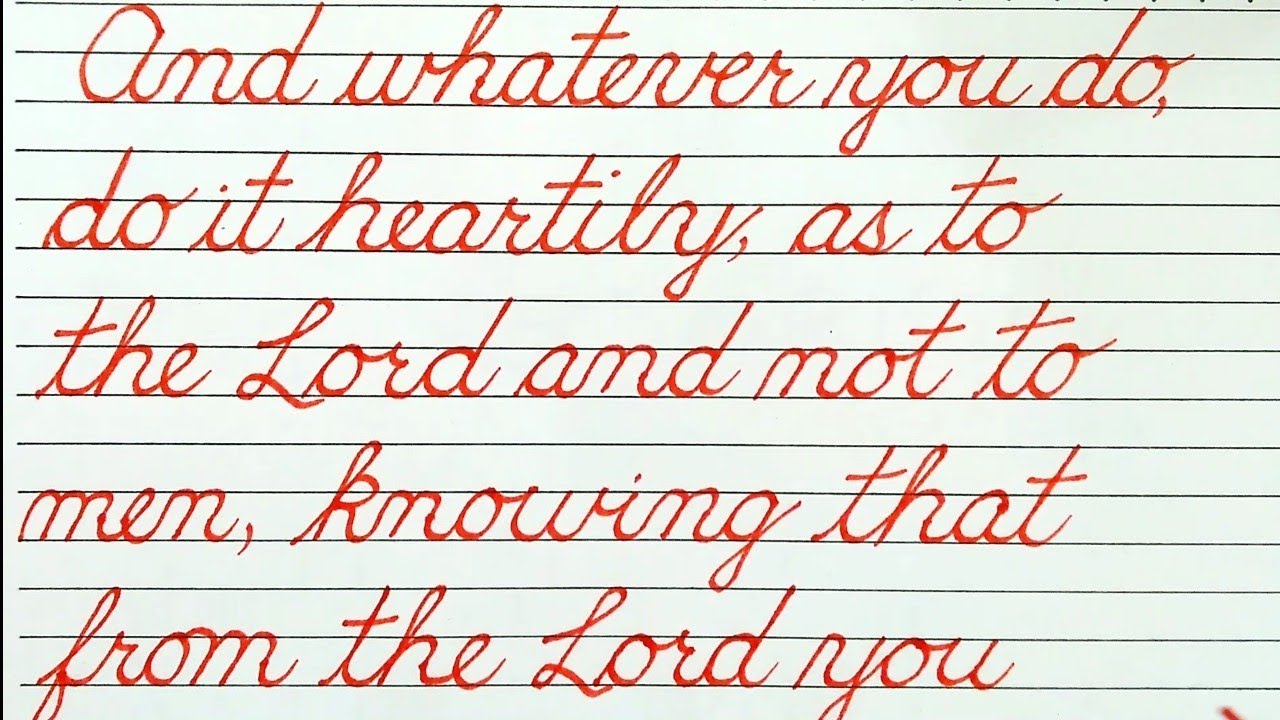 And whatever you do,
do it heartily, as to
the Lord and not to
men, knowing that
from the Lord you